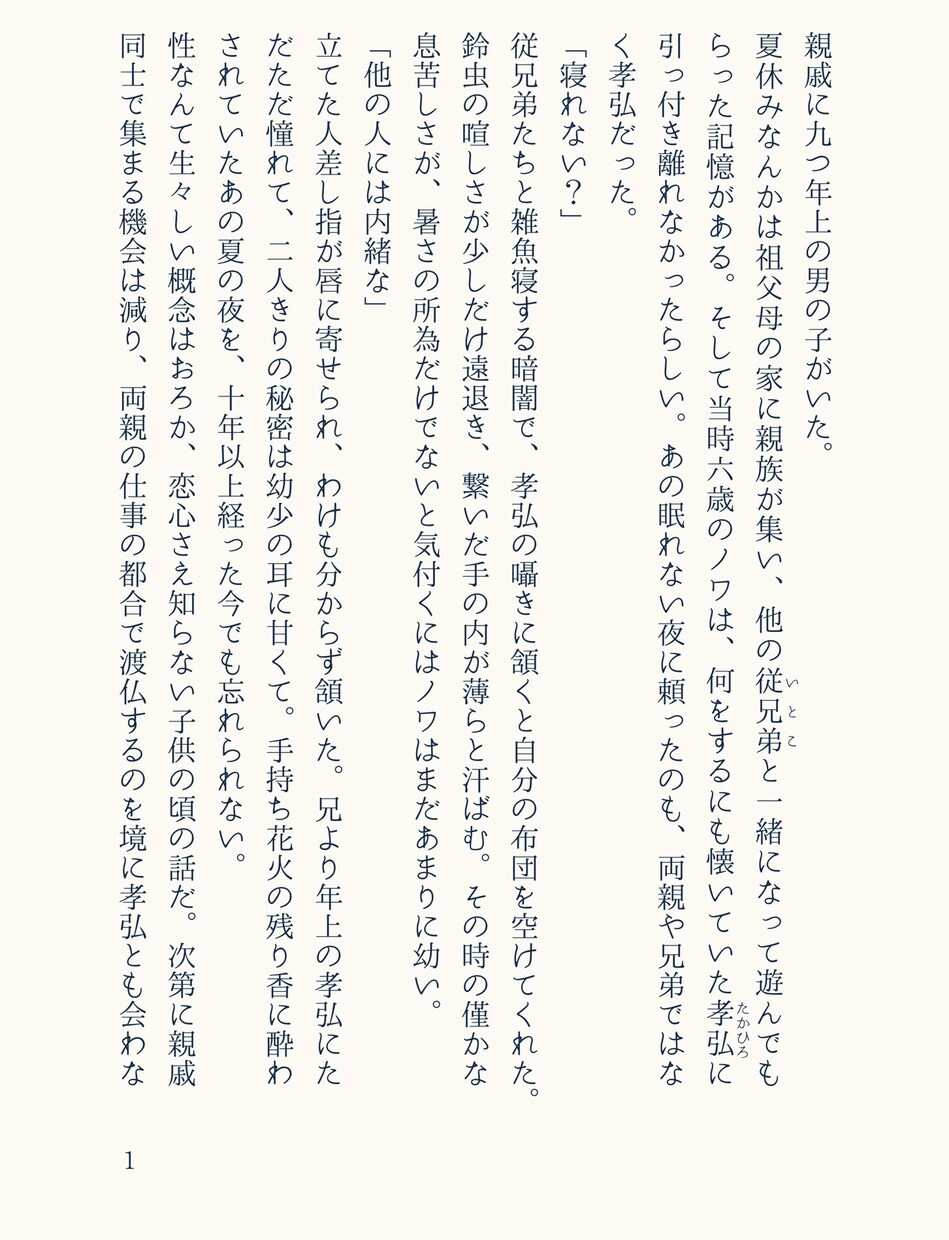 親戚に九つ年上の男の子がいた。
夏休みなんかは祖父母の家に親族が集い、他の従兄弟と一緒になって遊んでも
いとこ
らった記憶がある。そして当時六歳のノワは、何をするにも懐いていた孝弘に
たかひろ
引っ付き離れなかったらしい。あの眠れない夜に頼ったのも、両親や兄弟ではな
く孝弘だった。
「寝れない？」
従兄弟たちと雑魚寝する暗闇で、孝弘の囁きに頷くと自分の布団を空けてくれた。
鈴虫の喧しさが少しだけ遠退き、繋いだ手の内が薄らと汗ばむ。その時の僅かな
息苦しさが、暑さの所為だけでないと気付くにはノワはまだあまりに幼い。
「他の人には内緒な」
立てた人差し指が唇に寄せられ、わけも分からず頷いた。兄より年上の孝弘にた
だただ憧れて、二人きりの秘密は幼少の耳に甘くて。手持ち花火の残り香に酔わ
されていたあの夏の夜を、十年以上経った今でも忘れられない。
性なんて生々しい概念はおろか、恋心さえ知らない子供の頃の話だ。次第に親戚
同士で集まる機会は減り、両親の仕事の都合で渡仏するのを境に孝弘とも会わな
1